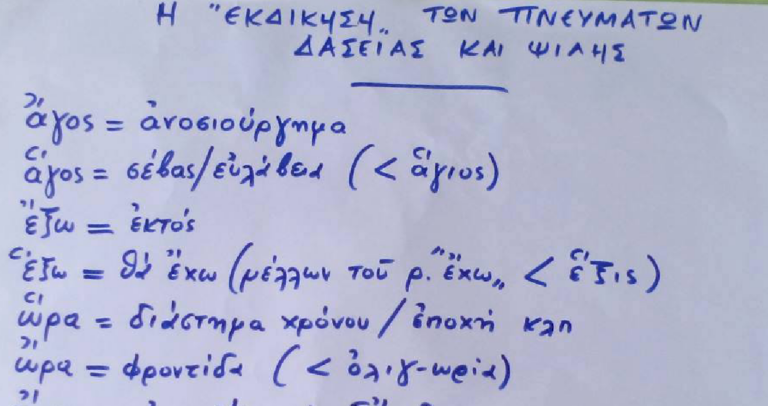 Η "ΕΚΔΙΚΗΣΗ„ ΤΩΝ ΠΝΕΥΜΑΤΩΝ
ΔΑΣΕΙΑΣ ΚΑΙ ΨΙΛΗΣ
ἄγος = ἀνοσιούργημα
ἅγος = σέβας/εὐλάβεια (< ἅγιος)
ἔξω = ἐκτός
ἕξω = θά ἔχω (μέλλων τοῦ ρ. "ἔχω„ < ἕξις)
ὥρα = διάστημα χρόνου / ἐποχή κλπ
ὤρα = φροντίδα (< ὀλιγ-ωρία)